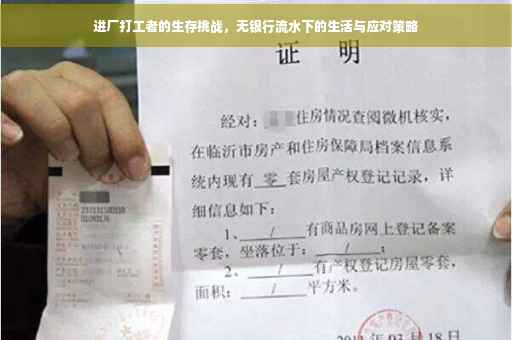 进厂打工者的生存挑战，无银行流水下的生活与应对策略
证 明
经对：住房情况查阅微机核实，
在临沂市房产和住房保障局档案信息系
统内现有 零 套房屋产权登记记录，详
细信息如下：
1、 / 有商品房网上登记备案
零套，坐落位于： / ；
2、 / 有产权登记房屋零套，
面积： / 平方米。
年03月18日